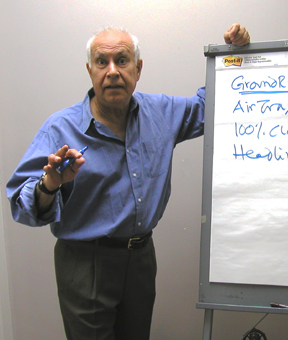 Post-it
GroundR
AirTra
100% Cu
Headlin